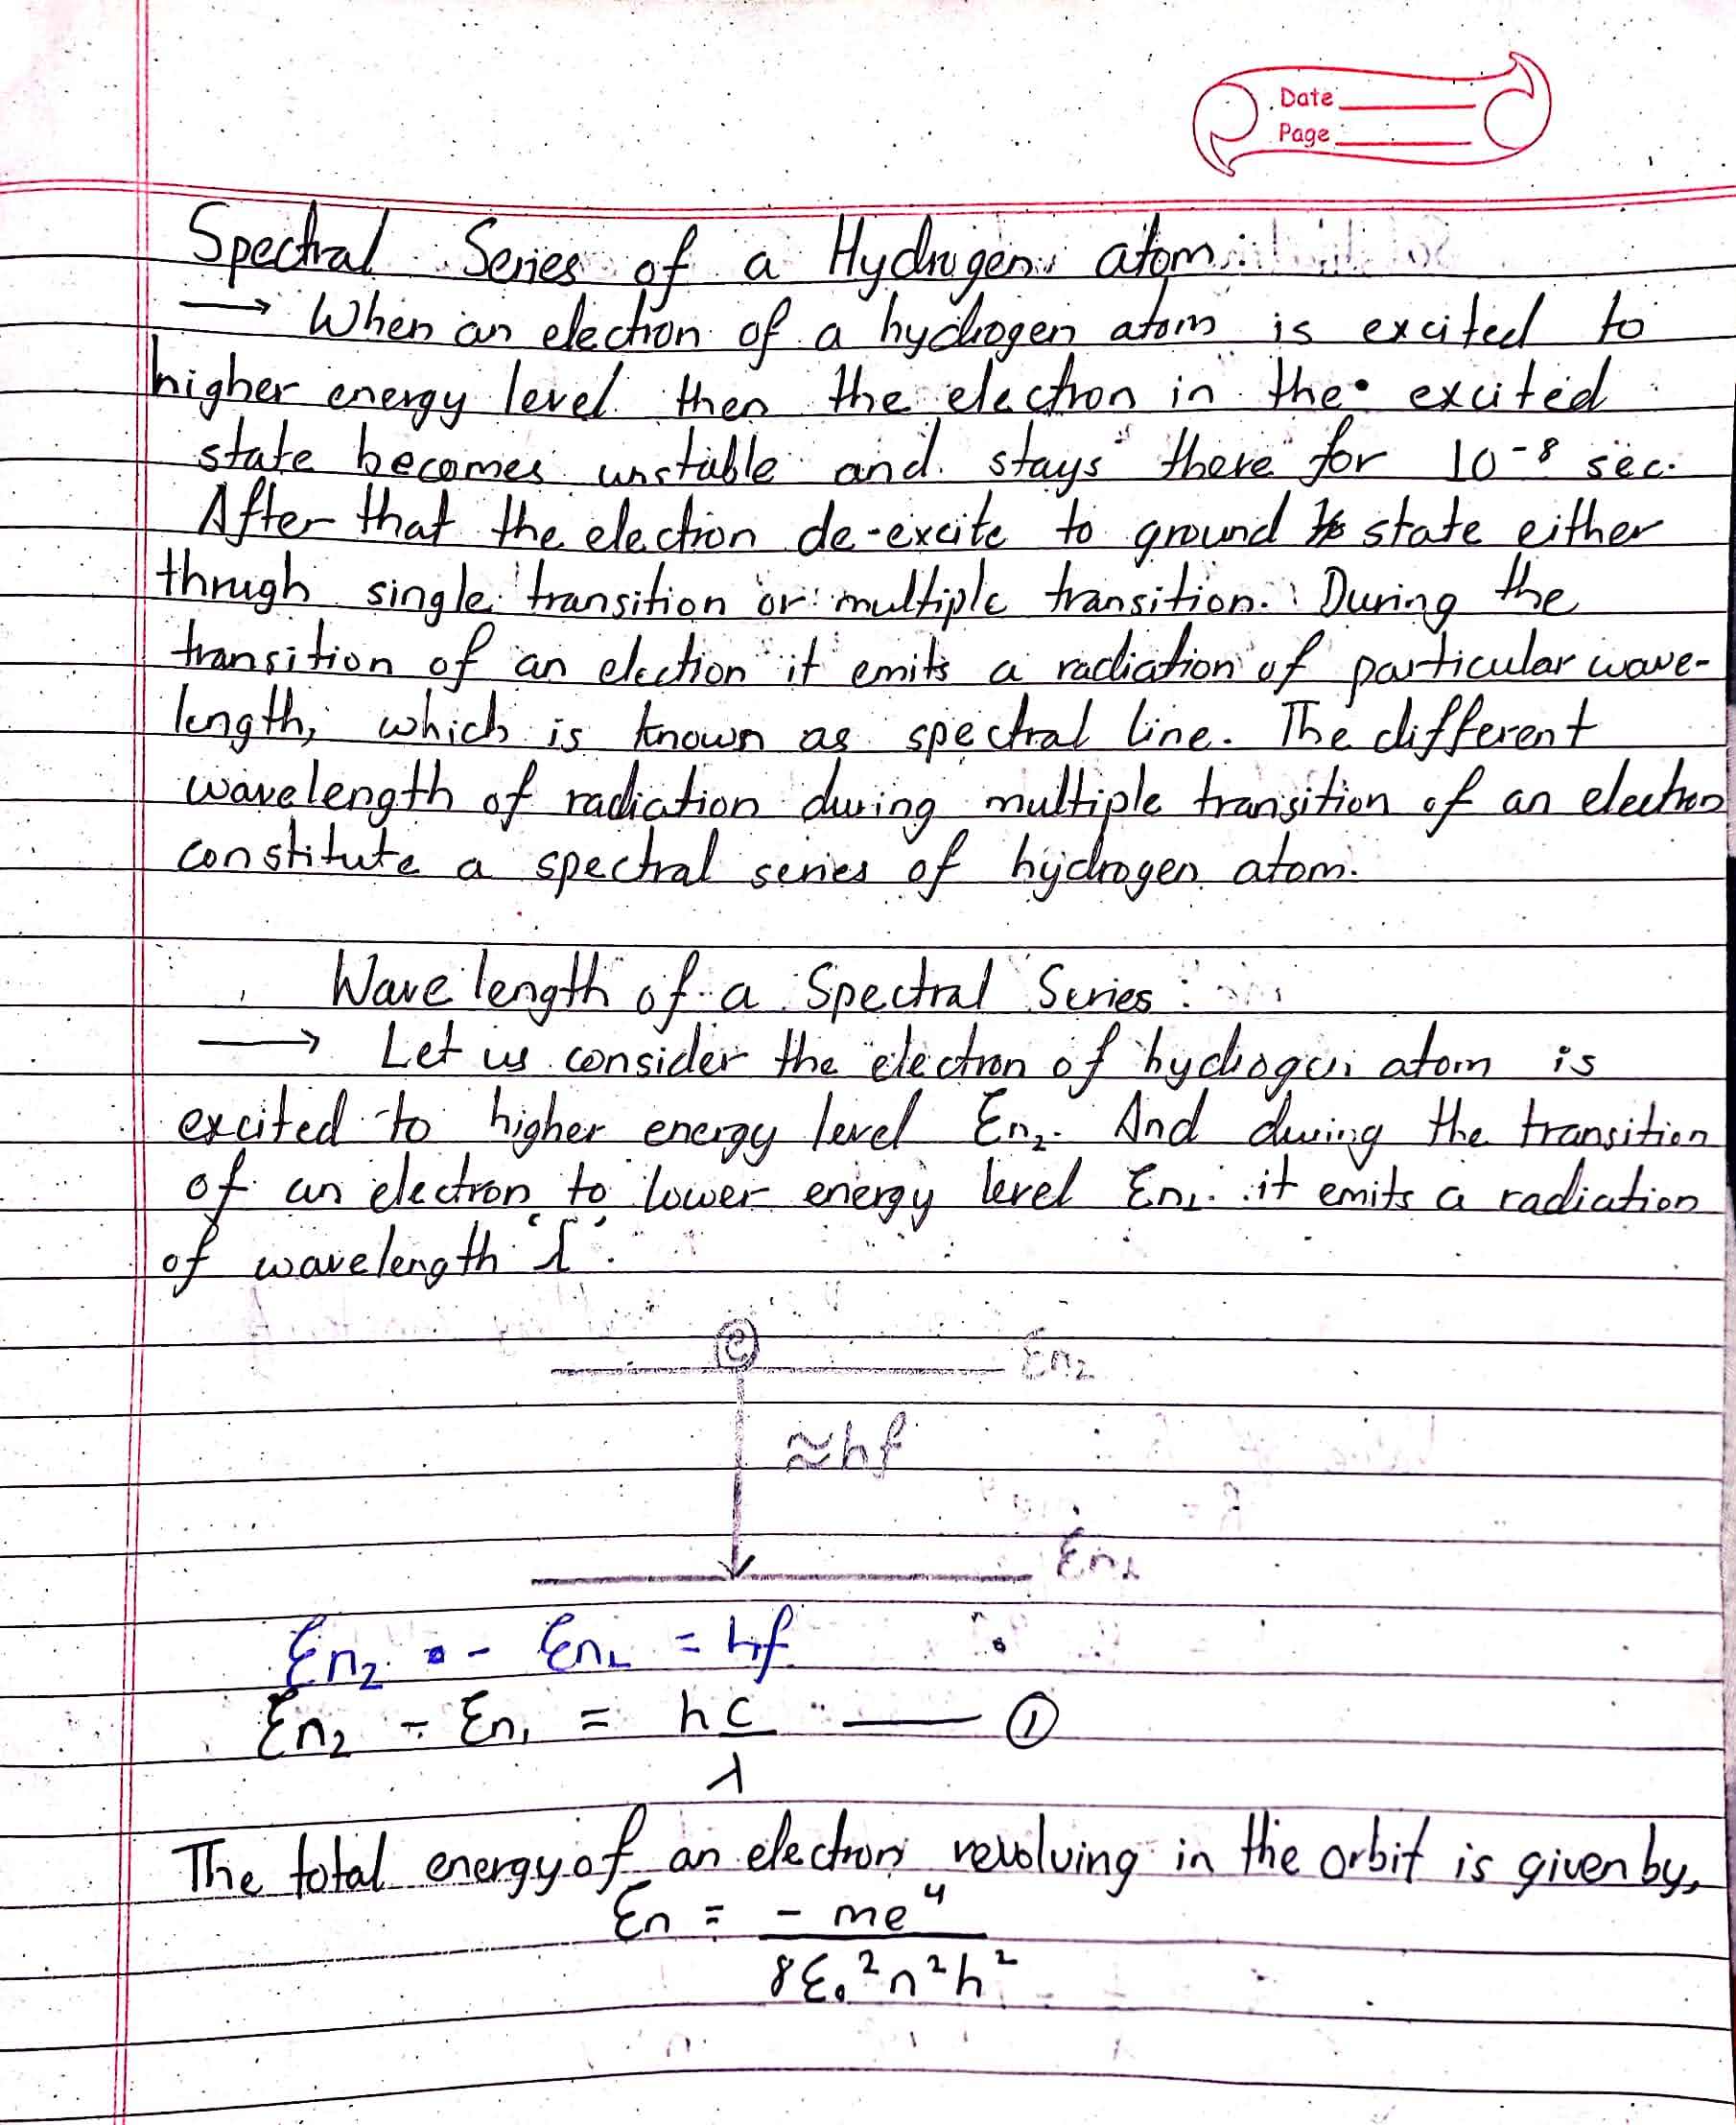 Date
Page
Spectral Series of a Hydrogen atom:
→ When an electron of a hydrogen atom is excited to
higher energy level then the electron in the excited
state becomes unstable and stays there for 10⁻⁸ sec.
After that the electron de-excite to ground state either
thrugh single transition or multiple transition. During the
transition of an electron it emits a radiation of particular wave-
length, which is known as spectral line. The different
wavelength of radiation during multiple transition of an electron
constitute a spectral series of hydrogen atom.
Wavelength of a Spectral Series:
→ Let us consider the electron of hydrogen atom is
excited to higher energy level En₂. And during the transition
of an electron to lower energy level En₁. it emits a radiation
of wavelength 'λ'.
e
En₂
≈hf
En₁
En₂ - En₁ = hf
En₂ - En₁ = hc/λ —— ①
The total energy of an electron revolving in the orbit is given by,
En = - me⁴
8ε₀²n²h²